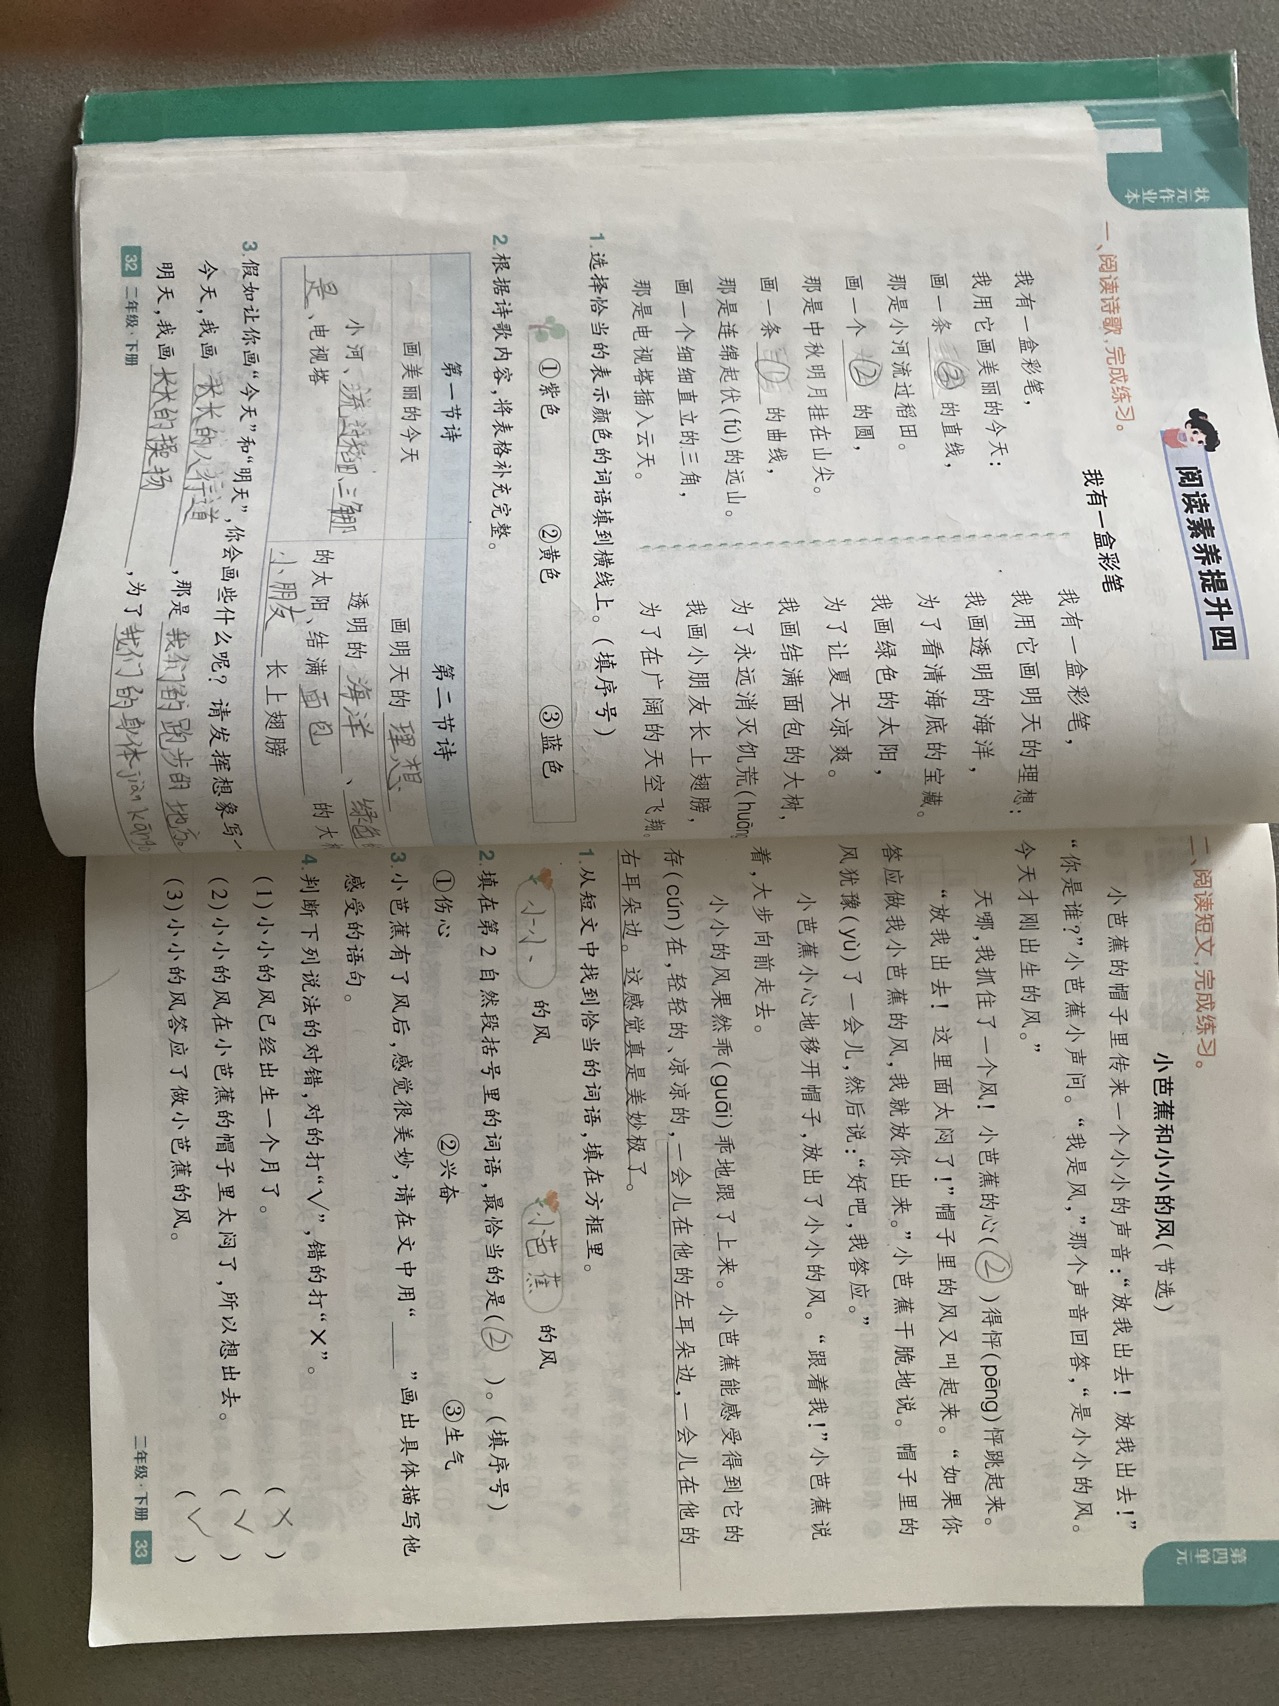 状元作业本
阅读素养提升四
一、阅读诗歌,完成练习。
我有一盒彩笔
我有一盒彩笔,
我用它画美丽的今天:
画一条 ③ 的直线,
那是小河流过稻田。
画一个 ② 的圆,
那是中秋明月挂在山尖。
画一条 ① 的曲线,
那是连绵起伏(fú)的远山。
画一个细细直立的三角,
那是电视塔插入云天。
我有一盒彩笔,
我用它画明天的理想:
我画透明的海洋,
为了看清海底的宝藏。
我画绿色的太阳,
为了让夏天凉爽。
我画结满面包的大树,
为了永远消灭饥荒(huāng
我画小朋友长上翅膀,
为了在广阔的天空飞翔。
1.选择恰当的表示颜色的词语填到横线上。(填序号)
①紫色 ②黄色 ③蓝色
2.根据诗歌内容,将表格补充完整。
第一节诗 第二节诗
画美丽的今天 画明天的 理想
小河、流过稻田、三角那 透明的 海洋 、绿色
是、电视塔 的太阳、结满 面包 的大树
小朋友 长上翅膀
3.假如让你画“今天”和“明天”,你会画些什么呢?请发挥想象写一
今天,我画 长长的人行道 ,那是 我们的跑步的地方
明天,我画 长长的操场 ,为了 我们的身体jiàn kāng
32 二年级·下册
第四单元
二、阅读短文,完成练习。
小芭蕉和小小的风(节选)
小芭蕉的帽子里传来一个小小的声音:“放我出去!放我出去!”
“你是谁?”小芭蕉小声问。“我是风,”那个声音回答,“是小小的风。
今天才刚出生的风。”
天哪,我抓住了一个风!小芭蕉的心( ② )得怦(pēng)怦跳起来。
“放我出去!这里面太闷了!”帽子里的风又叫起来。“如果你
答应做我小芭蕉的风,我就放你出来。”小芭蕉干脆地说。帽子里的
风犹豫(yù)了一会儿,然后说:“好吧,我答应。”
小芭蕉小心地移开帽子,放出了小小的风。“跟着我!”小芭蕉说
着,大步向前走去。
小小的风果然乖(guāi)乖地跟了上来。小芭蕉能感受得到它的
存(cún)在,轻轻的、凉凉的,一会儿在他的左耳朵边,一会儿在他的
右耳朵边。这感觉真是美妙极了。
1.从短文中找到恰当的词语,填在方框里。
小小、 的风 小芭蕉 的风
2.填在第2自然段括号里的词语,最恰当的是( ② )。(填序号)
①伤心 ②兴奋 ③生气
3.小芭蕉有了风后,感觉很美妙,请在文中用“____”画出具体描写他
感受的语句。
4.判断下列说法的对错,对的打“√”,错的打“×”。
(1)小小的风已经出生一个月了。 ( × )
(2)小小的风在小芭蕉的帽子里太闷了,所以想出去。 ( √ )
(3)小小的风答应了做小芭蕉的风。 ( √ )
二年级·下册 33